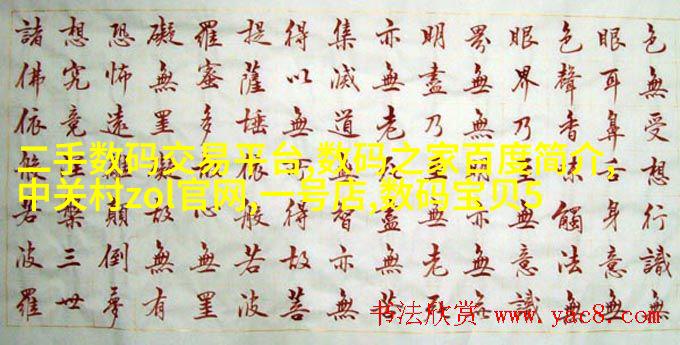 色無受想行識無
眼耳鼻舌身意無
色聲香味觸法無
眼界乃無意識
界無無明亦無無
明盡乃至無老死
亦無老死盡無苦
集滅道無智亦無
得以無所得故菩
提薩埵依般若波
羅蜜多故心無罣
礙無罣礙故無有
恐怖遠離顛倒夢
想究竟涅槃三世
諸佛依般若波羅
二手数码交易平台,数码之家百度简介,
中关村zol官网,一号店,数码宝贝5
书法欣赏 www.yac8.com